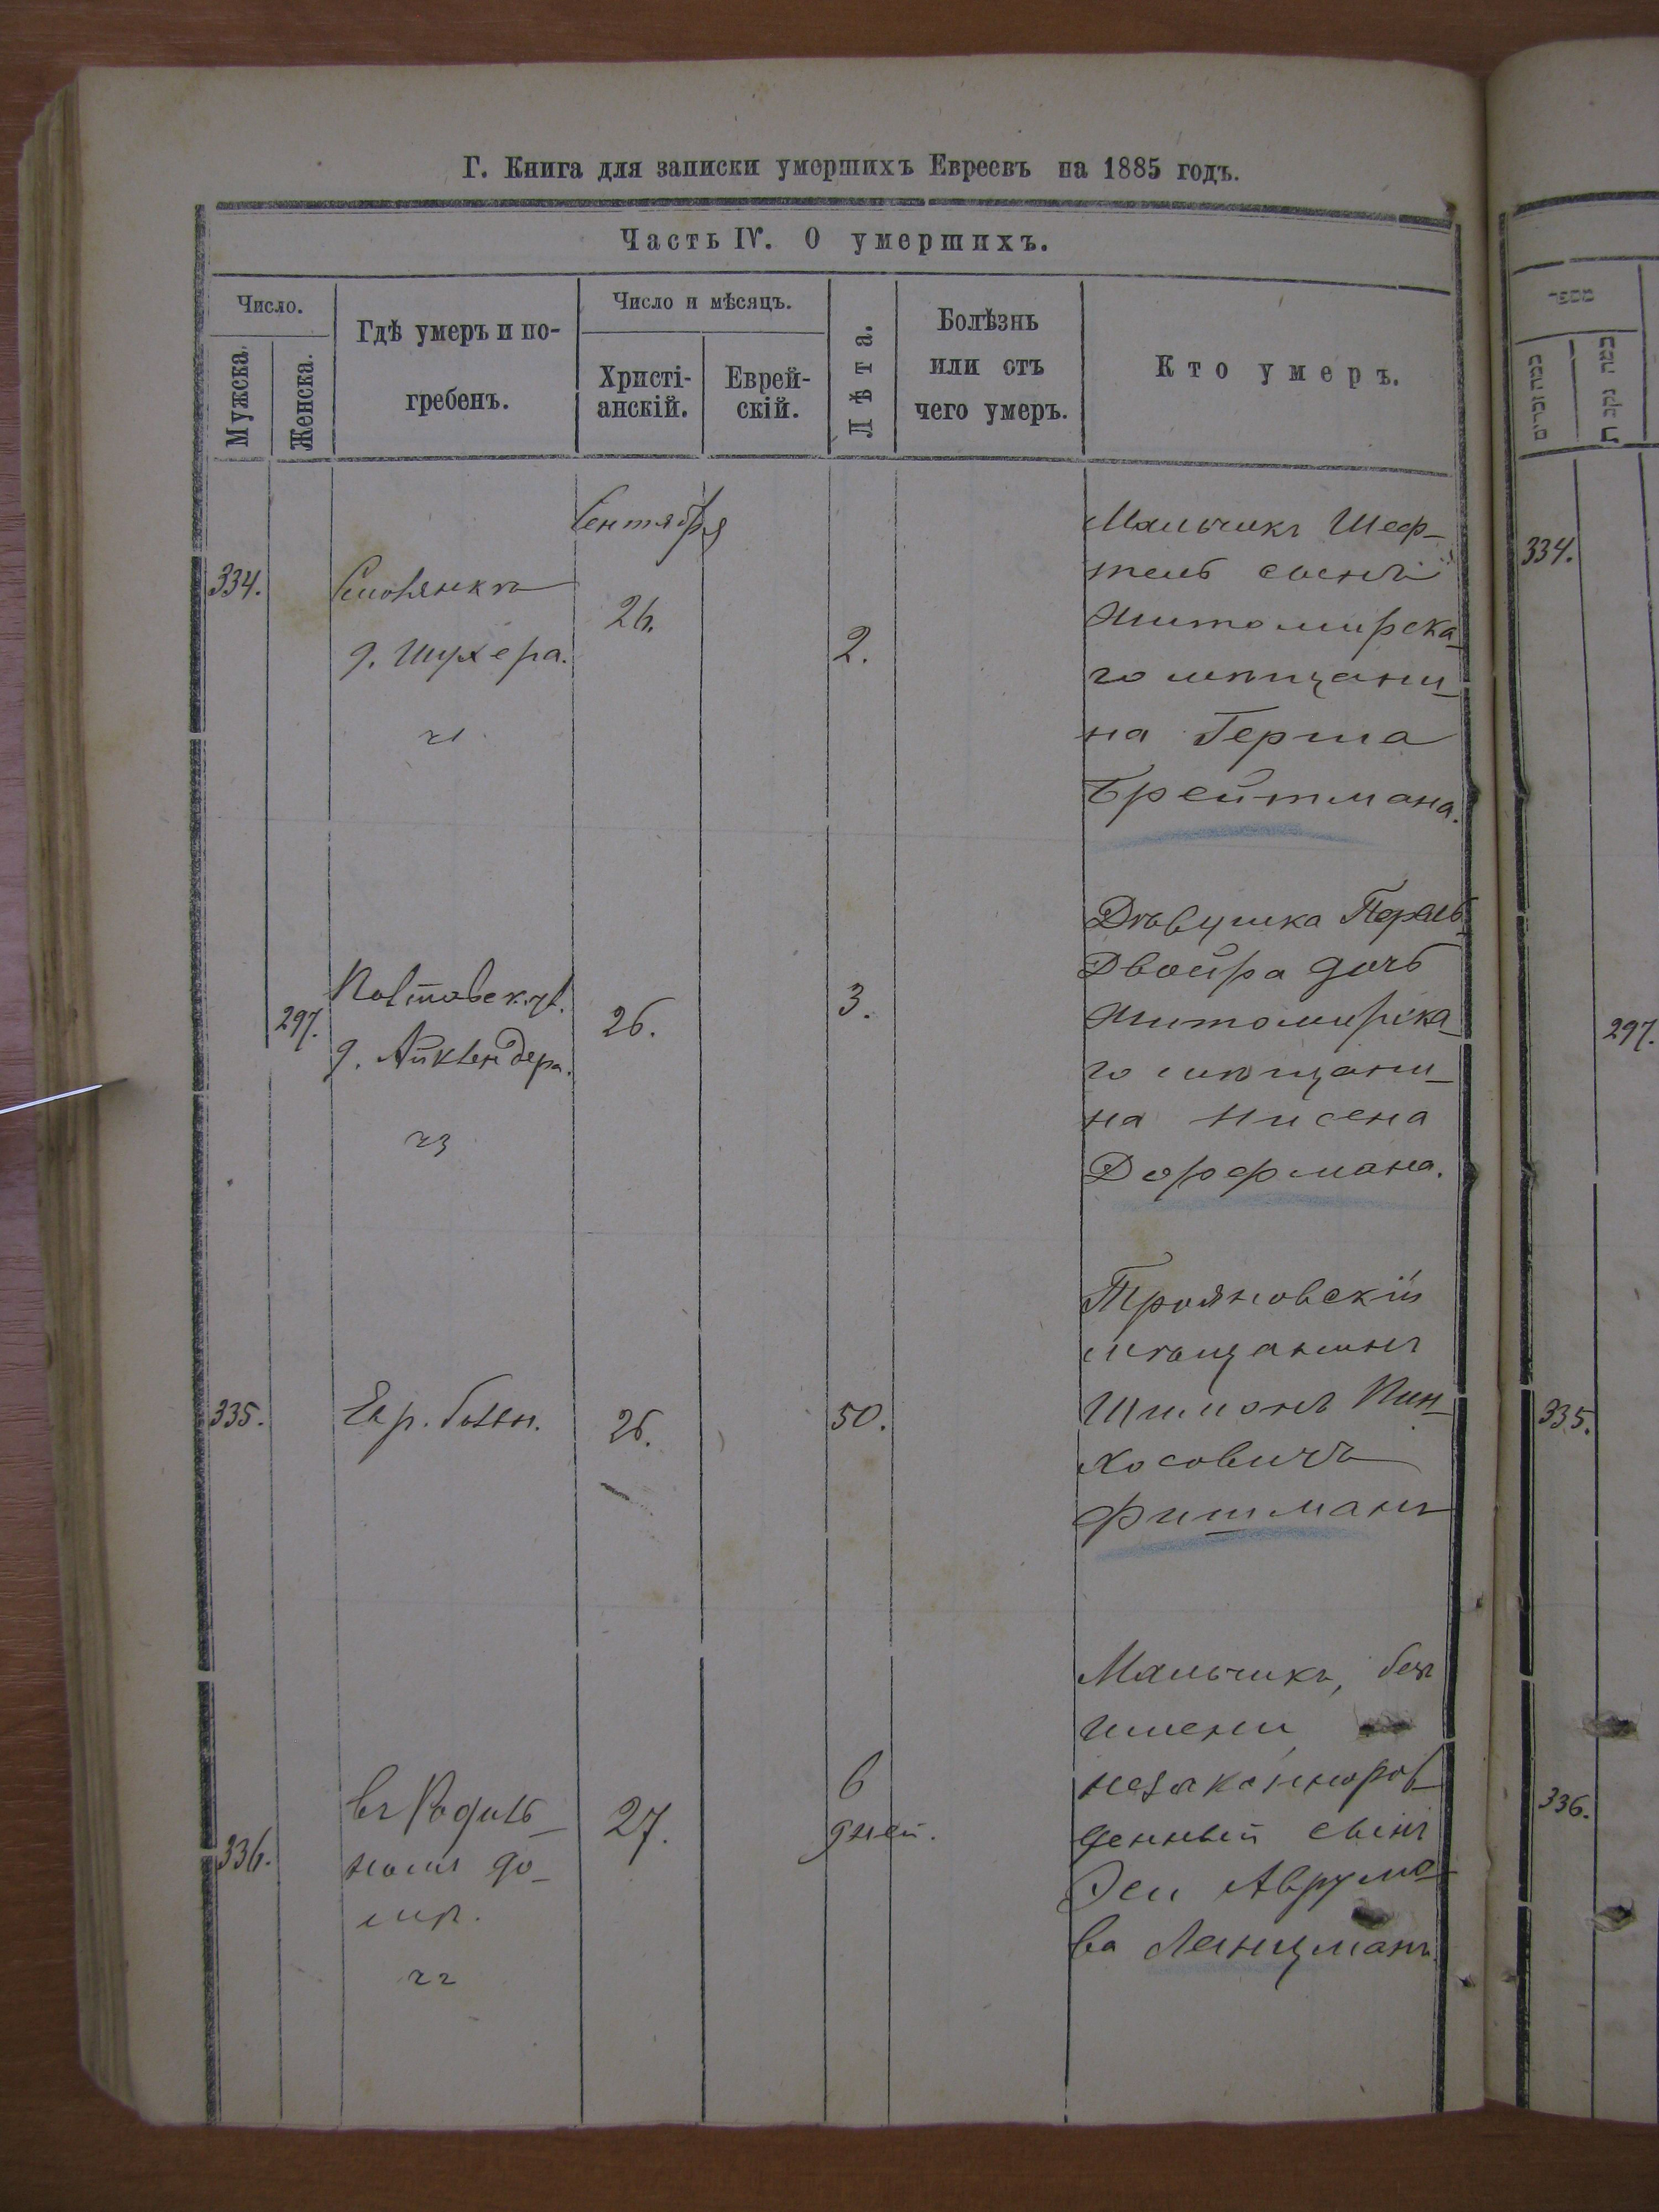 Г. Книга для записки умершихъ Евреевъ на 1885 годъ.
Часть IV. О умершихъ.
Число.
Мужска.
Женска.
Гдѣ умеръ и по-
гребенъ.
Число и мѣсяцъ.
Христі-
анскій.
Еврей-
скій.
Лѣта.
Болѣзнь
или отъ
чего умеръ.
Кто умеръ.
Сентября
334.
д. Шухера.
ч1
26.
2.
Мальчикъ Шеф-
тель сынъ
Житомирска-
го мѣщани-
на Герша
Брейтмана.
297.
д. Айклендера.
ч3
26.
3.
Дѣвушка Перль-
Двойра дочь
Житомирска-
го мѣщани-
на Нисена
Дорфмана.
335.
Евр. больн.
26.
50.
Трояновскій
мѣщанинъ
Шимонъ Пин-
хосовичъ
Фишманъ
336.
въ Родиль-
номъ до-
мѣ.
ч2
27.
6
дней.
Мальчикъ, безъ
имени
незаконнорож-
денный сынъ
Эси Аврумо-
ва Ланцманъ.
334.
297.
335.
336.